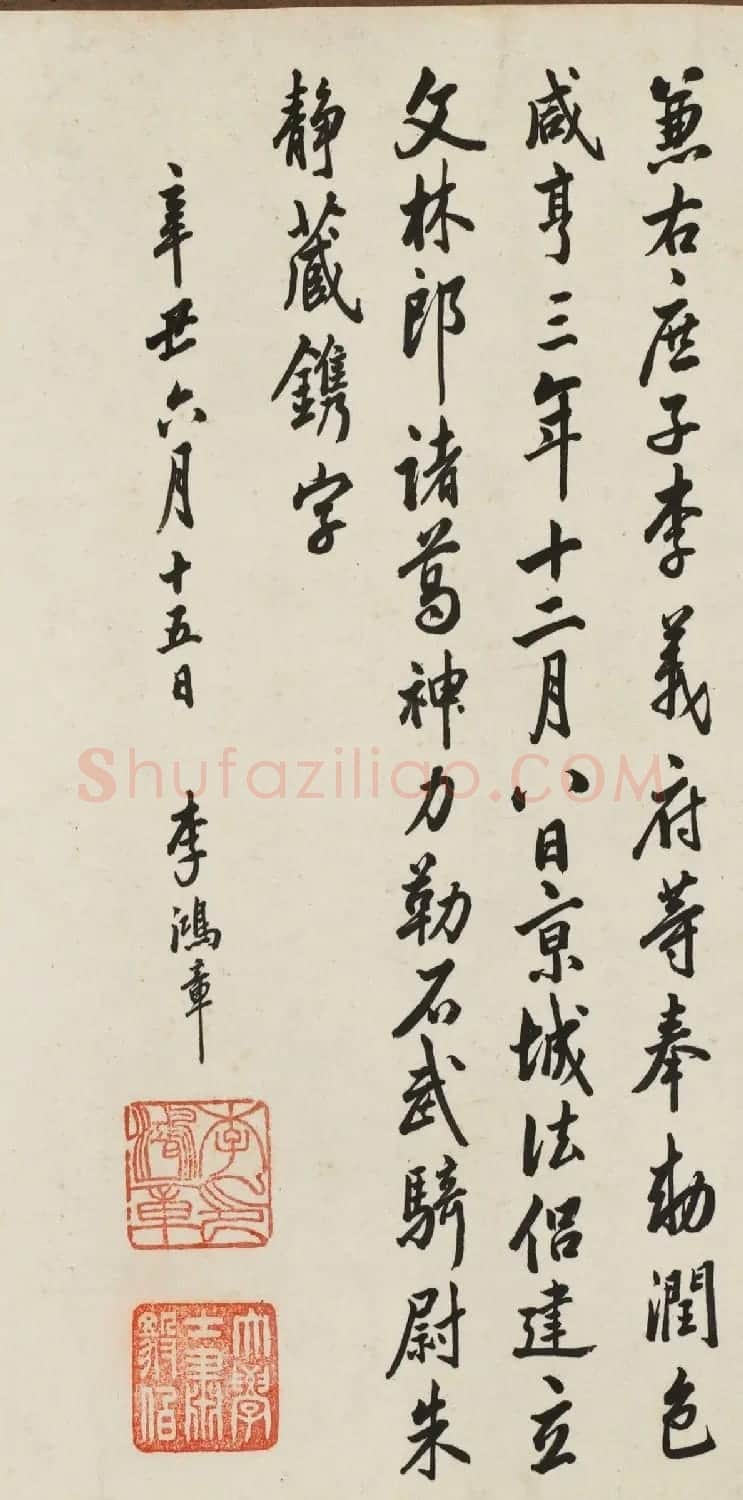 兼右庶子李義府等奉勅潤色
咸亨三年十二月八日京城法侶建立
文林郎諸葛神力勒石武騎尉朱
静藏鐫字
辛丑六月十五日 李鴻章
李鴻章印
大學士肅毅伯
Shufaziliao.COM